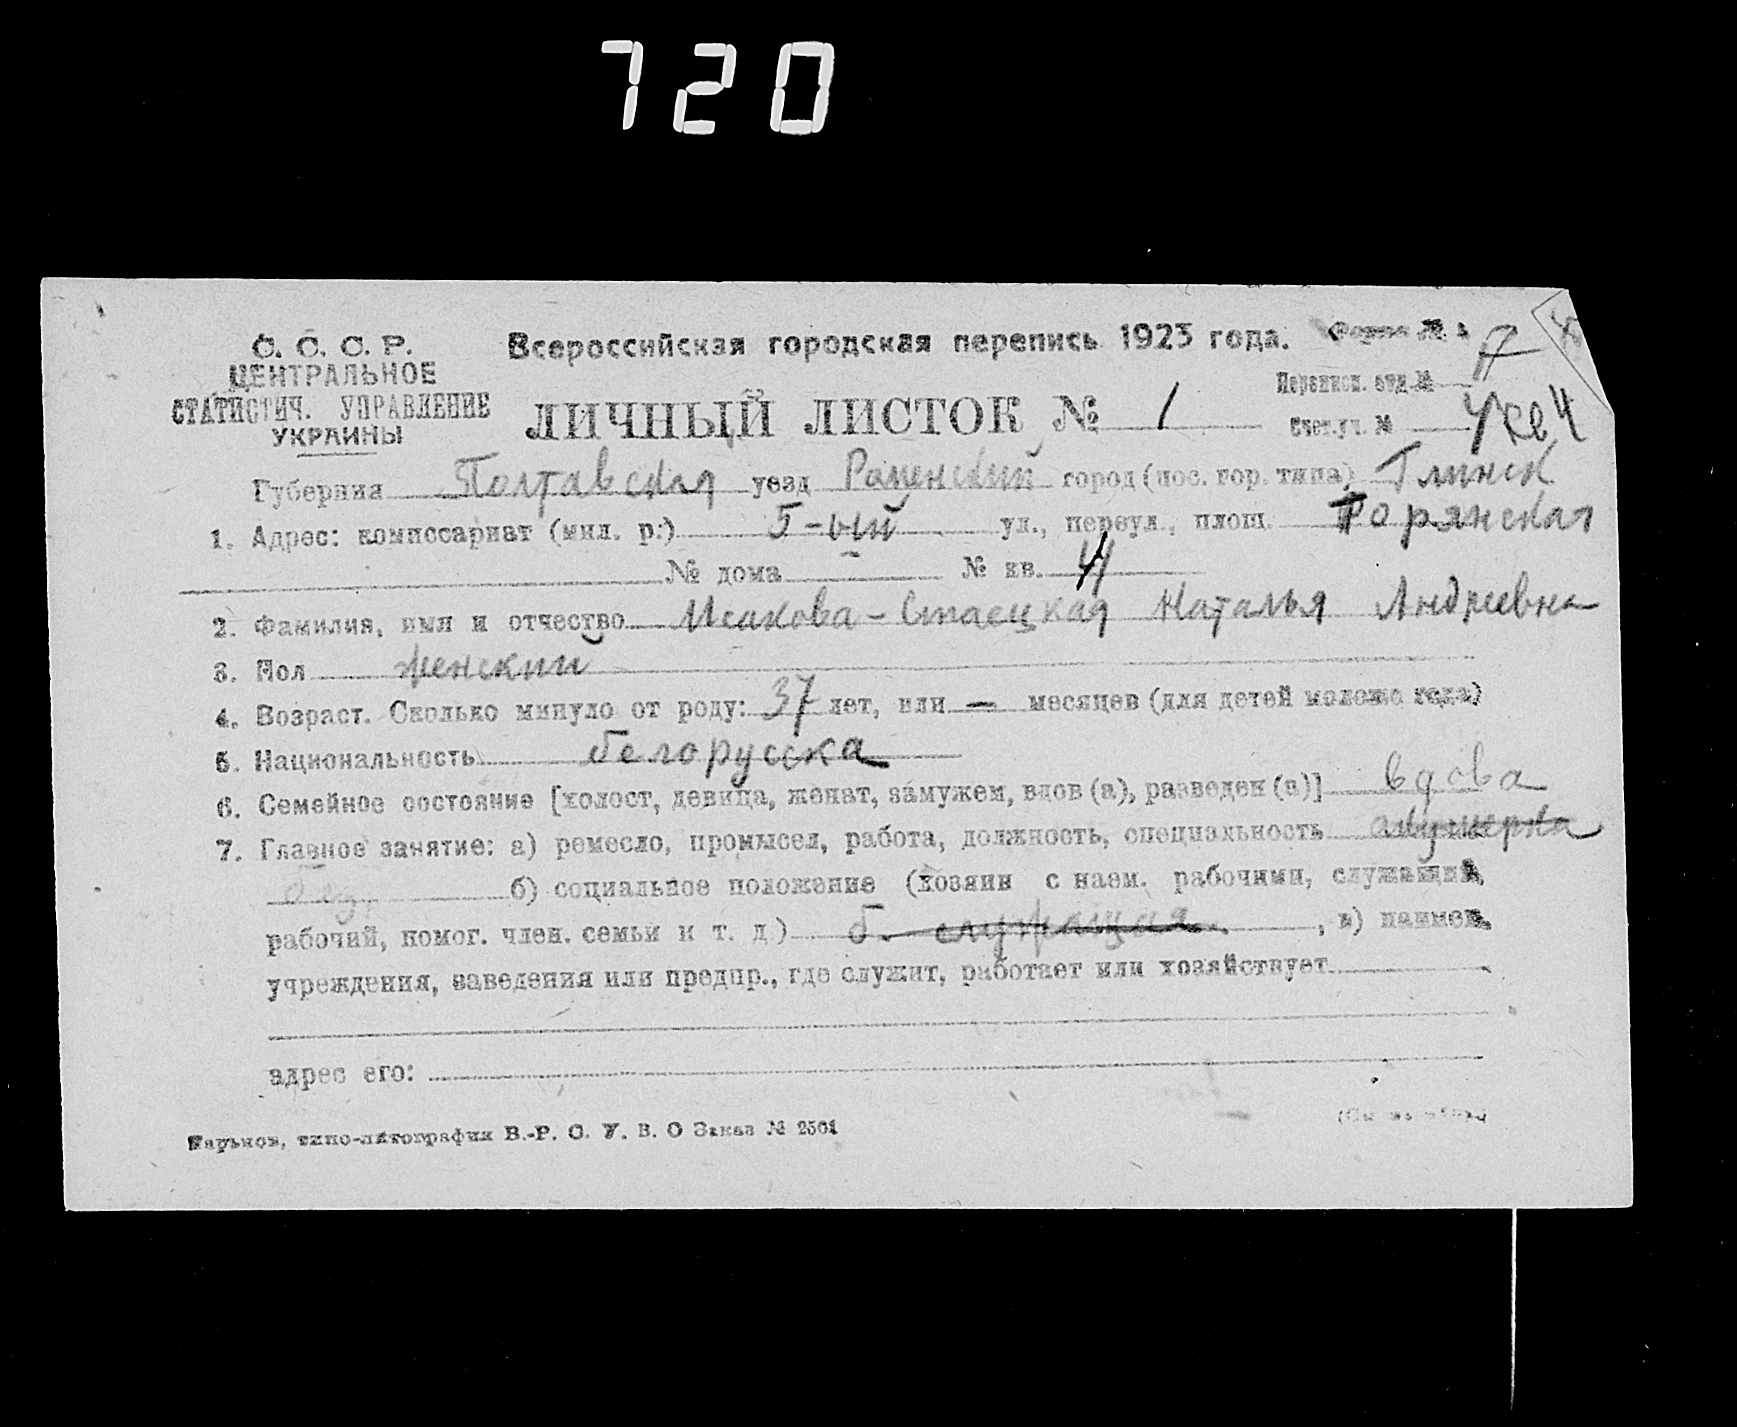 720
С. С. С. Р.
ЦЕНТРАЛЬНОЕ
СТАТИСТИЧ. УПРАВЛЕНИЕ
УКРАИНЫ
Всероссийская городская перепись 1923 года.
Форма №
ЛИЧНЫЙ ЛИСТОК № 1
Переписн. отд. №
Счетн. уч. №
Губерния Полтавская уезд Роменский город (пос. гор. типа) Глинск
1. Адрес: комиссариат (мил. р.) 5-ый ул., переул., площ.
№ дома – № кв. 4
2. Фамилия, имя и отчество Исакова-Стаецкая Наталья Андреевна
3. Пол женский
4. Возраст. Сколько минуло от роду: 37 лет, или — месяцев (для детей моложе года)
5. Национальность белорусска
6. Семейное состояние [холост, девица, женат, замужем, вдов (а), разведен (а)] вдова
7. Главное занятие: а) ремесло, промысел, работа, должность, специальность акушерка
б) социальное положение (хозяин с наем. рабочими, служащий,
рабочий, помог. член. семьи и т. д.) б. служащая, в) наимен.
учреждения, заведения или предпр., где служит, работает или хозяйствует
адрес его:
Харьков, типо-литография В.-Р. С. У. В. О Заказ №